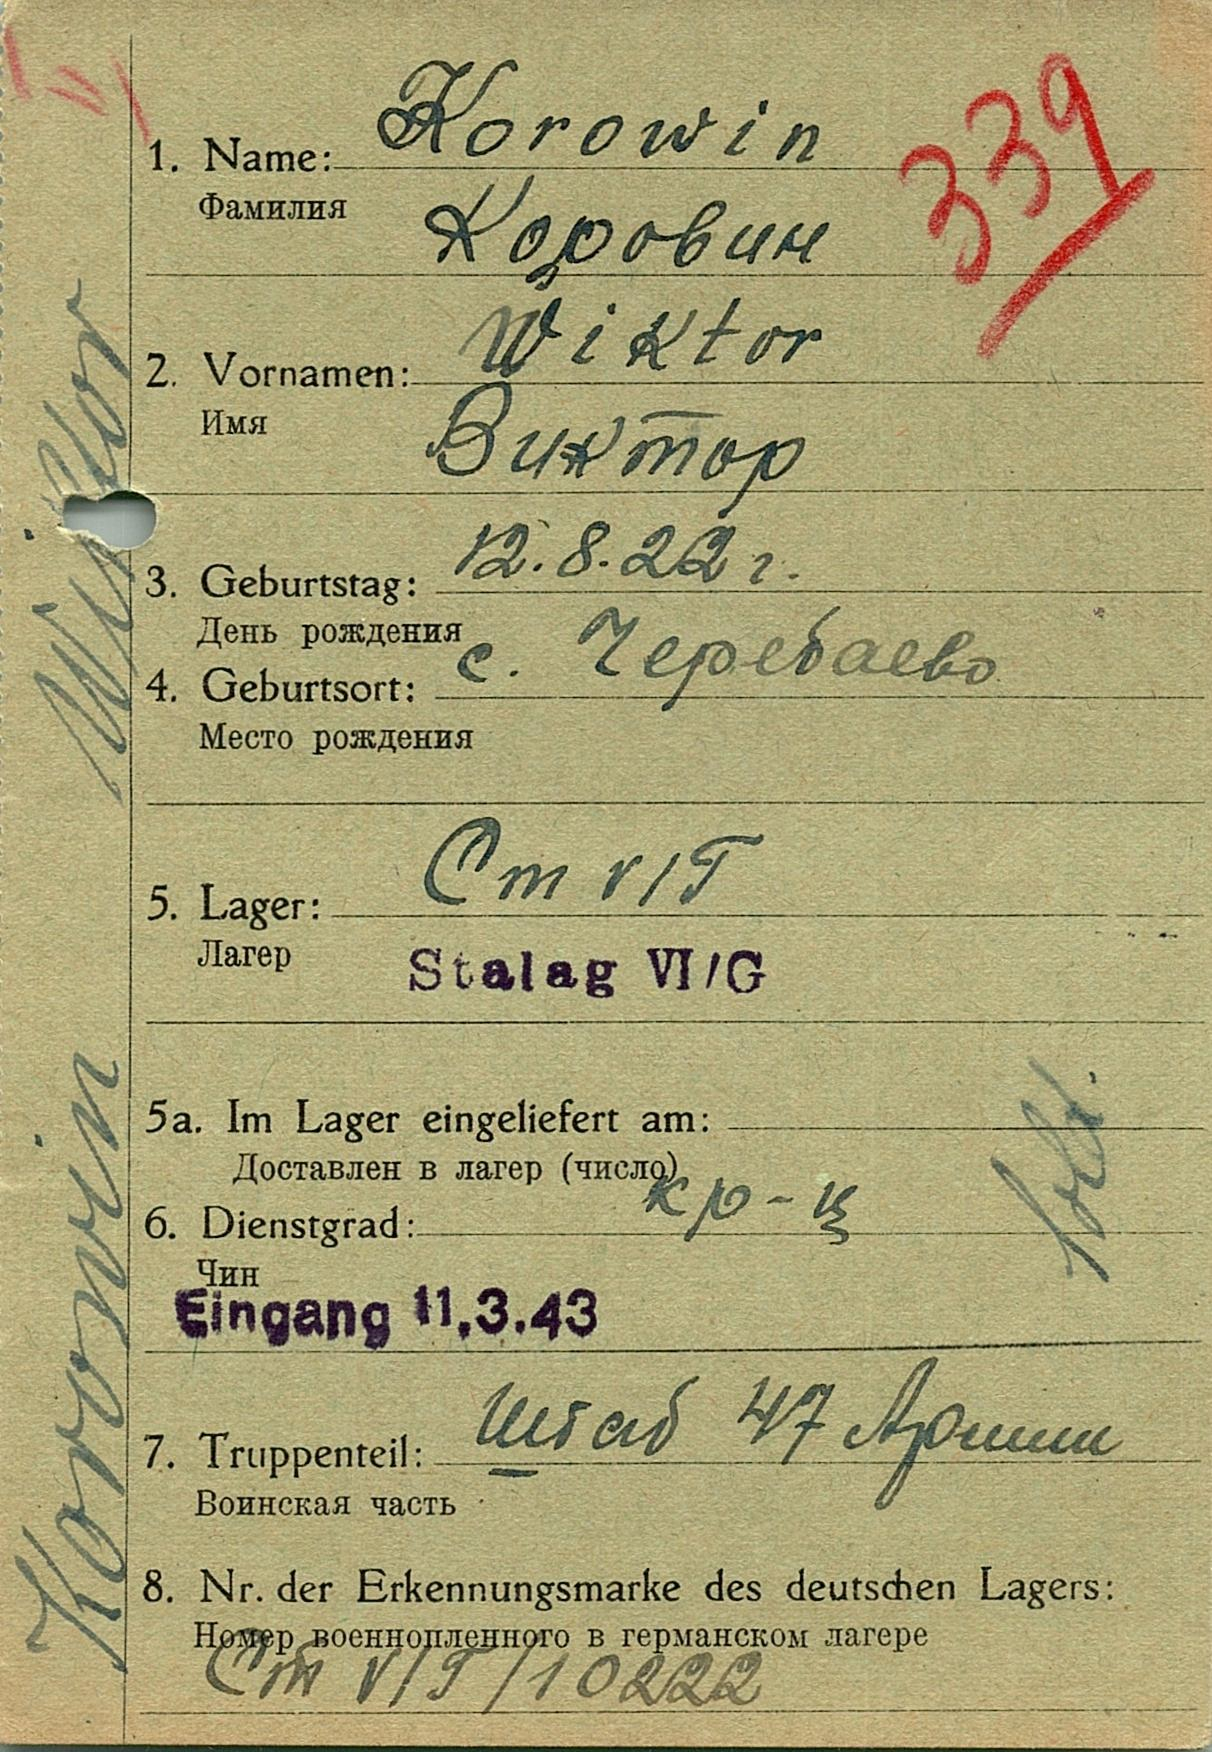 339
Korowin
1. Name:
Фамилия
Коровин
Wiktor
2. Vornamen:
Имя
Виктор
12.8.22 г.
3. Geburtstag:
День рождения
с. Черебаево
4. Geburtsort:
Место рождения
Ст V/Г
5. Lager:
Лагер
Stalag VI/G
5a. Im Lager eingeliefert am:
Доставлен в лагер (число)
кр-ц
6. Dienstgrad:
Чин
Eingang 11.3.43
Штаб 47 Армии
7. Truppenteil:
Воинская часть
8. Nr. der Erkennungsmarke des deutschen Lagers:
Номер военнопленного в германском лагере
Ст V/Г/10222
Korowin Wiktor